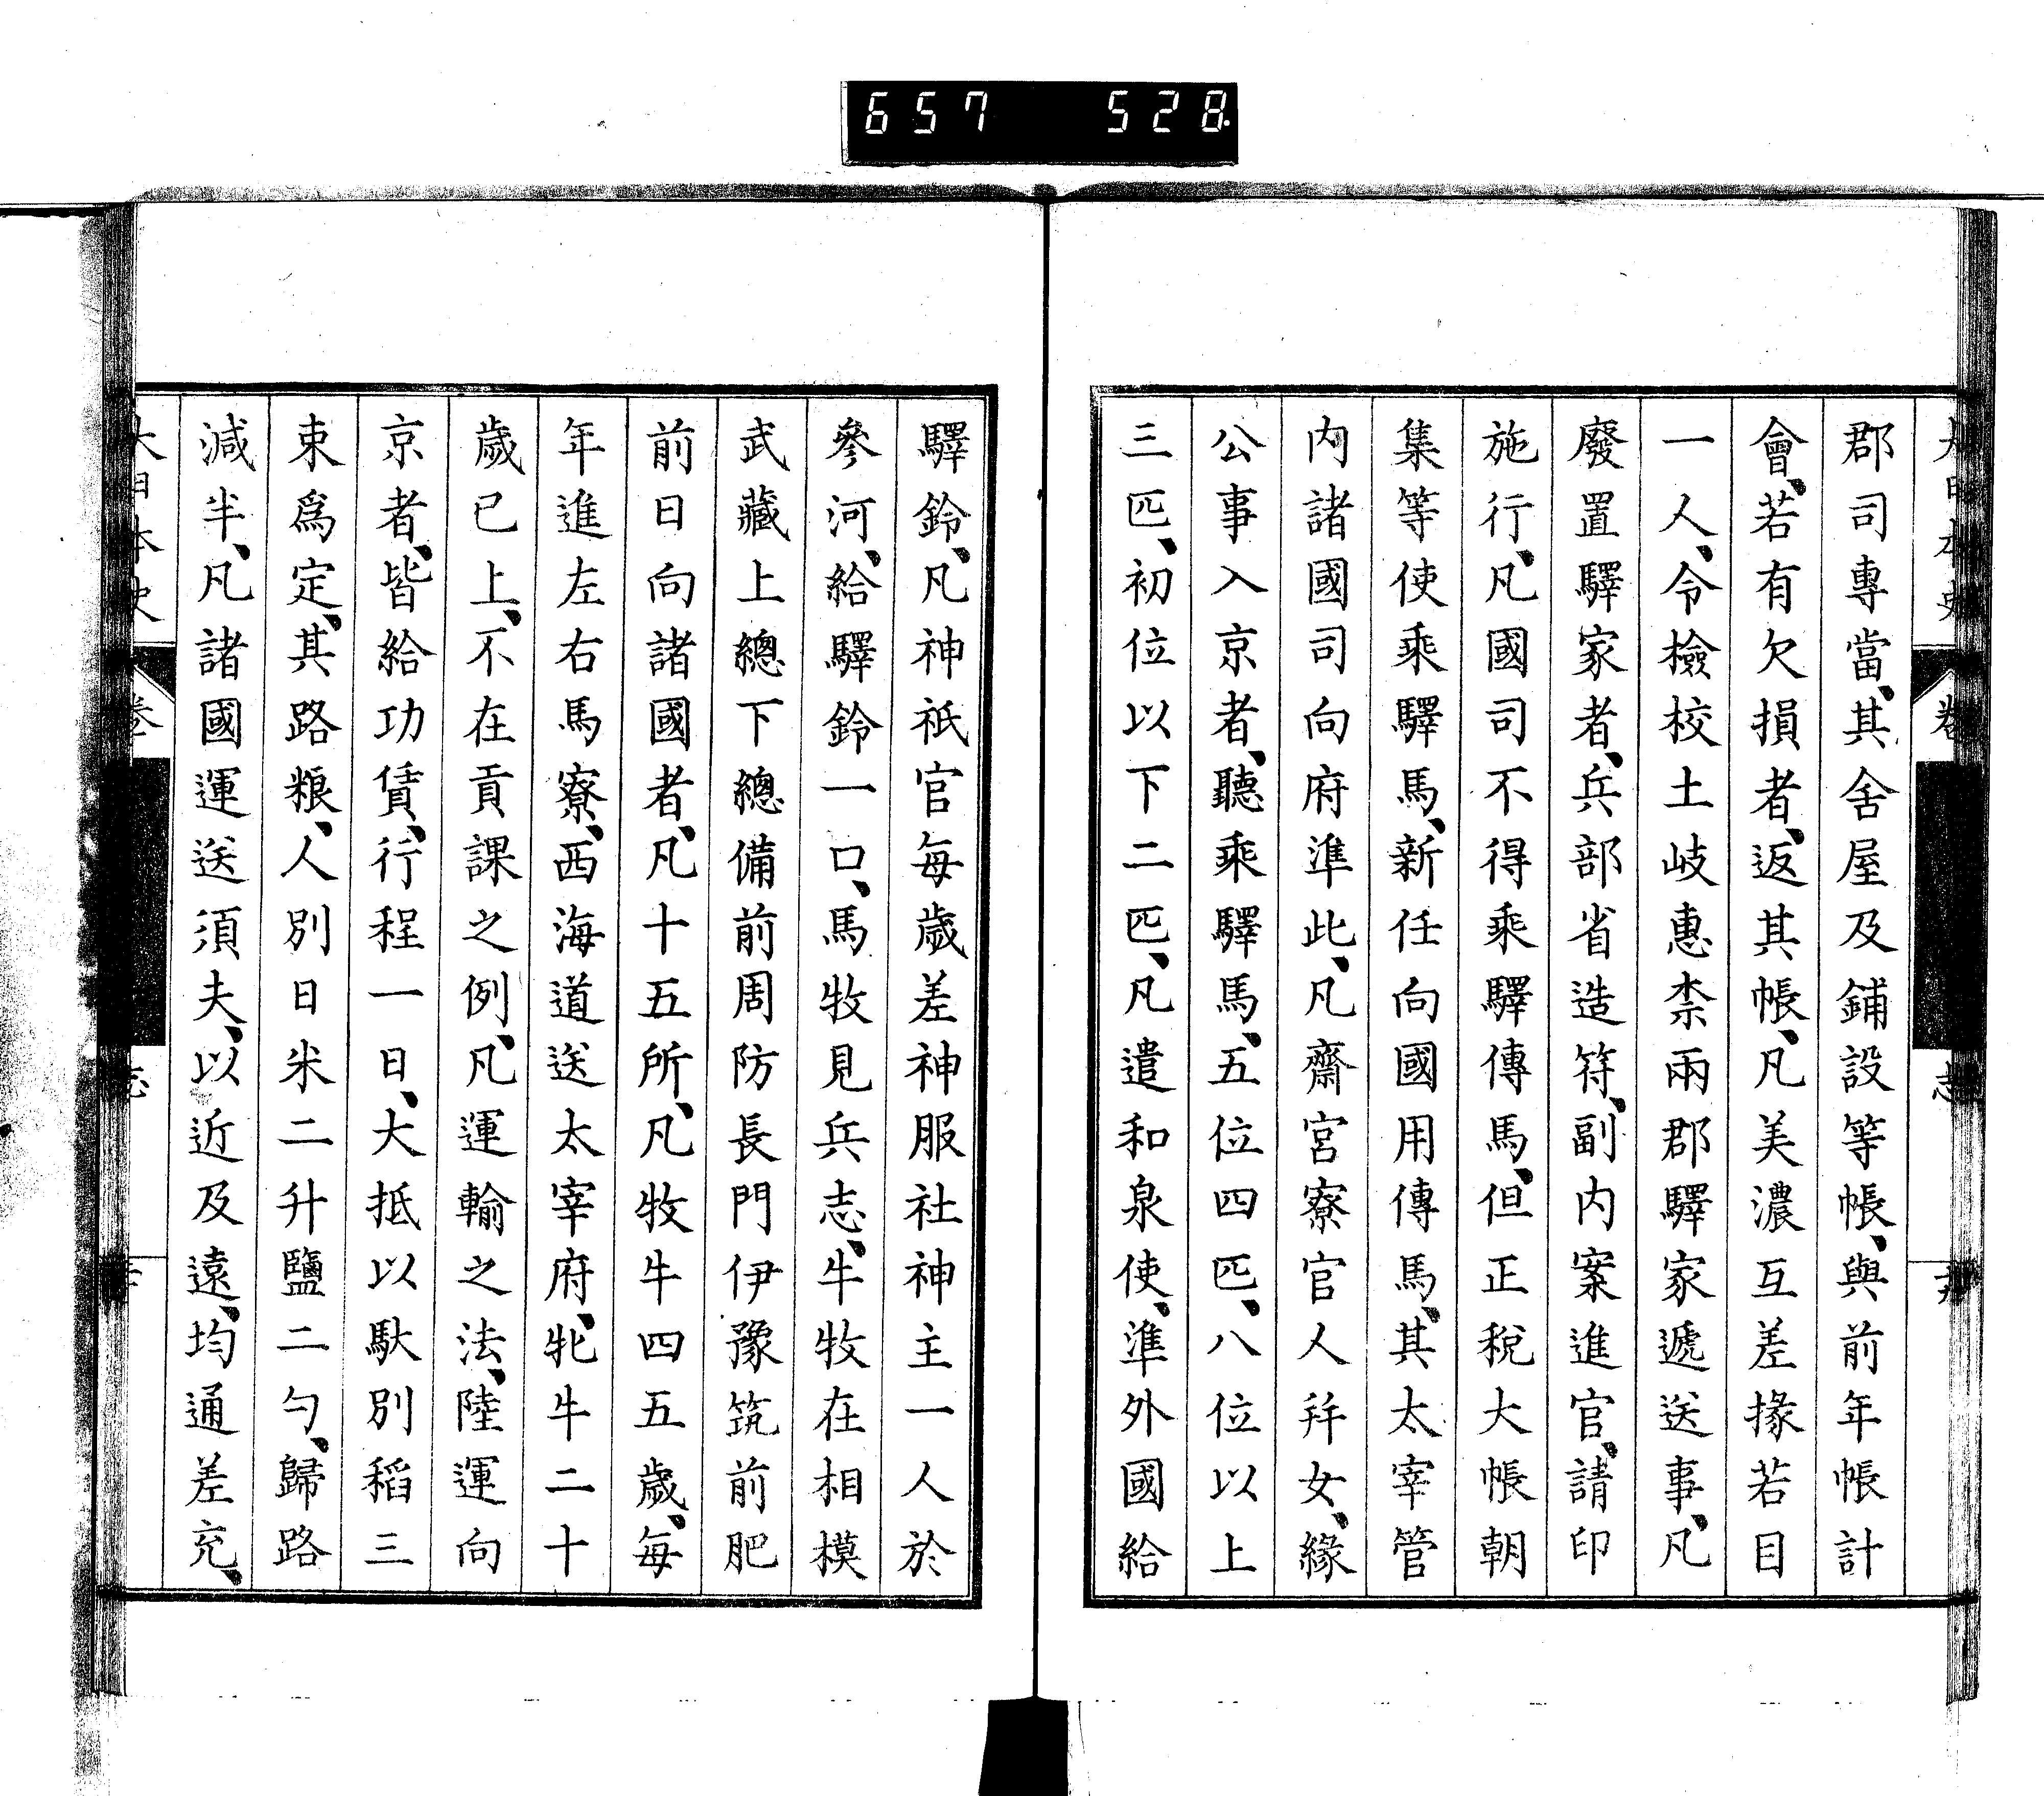 657 528
大日本史 卷 志
郡司專當、其舍屋及鋪設等帳、與前年帳計
會、若有欠損者、返其帳、凡美濃互差掾若目
一人、令檢校土岐惠柰兩郡驛家遞送事、凡
廢置驛家者、兵部省造符、副内案進官、請印
施行、凡國司不得乘驛傳馬、但正稅大帳朝
集等使乘驛馬、新任向國用傳馬、其太宰管
内諸國司向府準此、凡齋宮寮官人幷女、緣
公事入京者、聽乘驛馬、五位四匹、八位以上
三匹、初位以下二匹、凡遣和泉使、準外國給
驛鈴、凡神祇官每歲差神服社神主一人於
參河、給驛鈴一口、馬牧見兵志、牛牧在相模
武藏上總下總備前周防長門伊豫筑前肥
前日向諸國者、凡十五所、凡牧牛四五歲、每
年進左右馬寮、西海道送太宰府、牝牛二十
歲已上、不在貢課之例、凡運輸之法、陸運向
京者、皆給功賃、行程一日、大抵以馱別稻三
束爲定、其路粮、人別日米二升鹽二勺、歸路
減半、凡諸國運送須夫、以近及遠、均通差充、
大日本史 卷 志